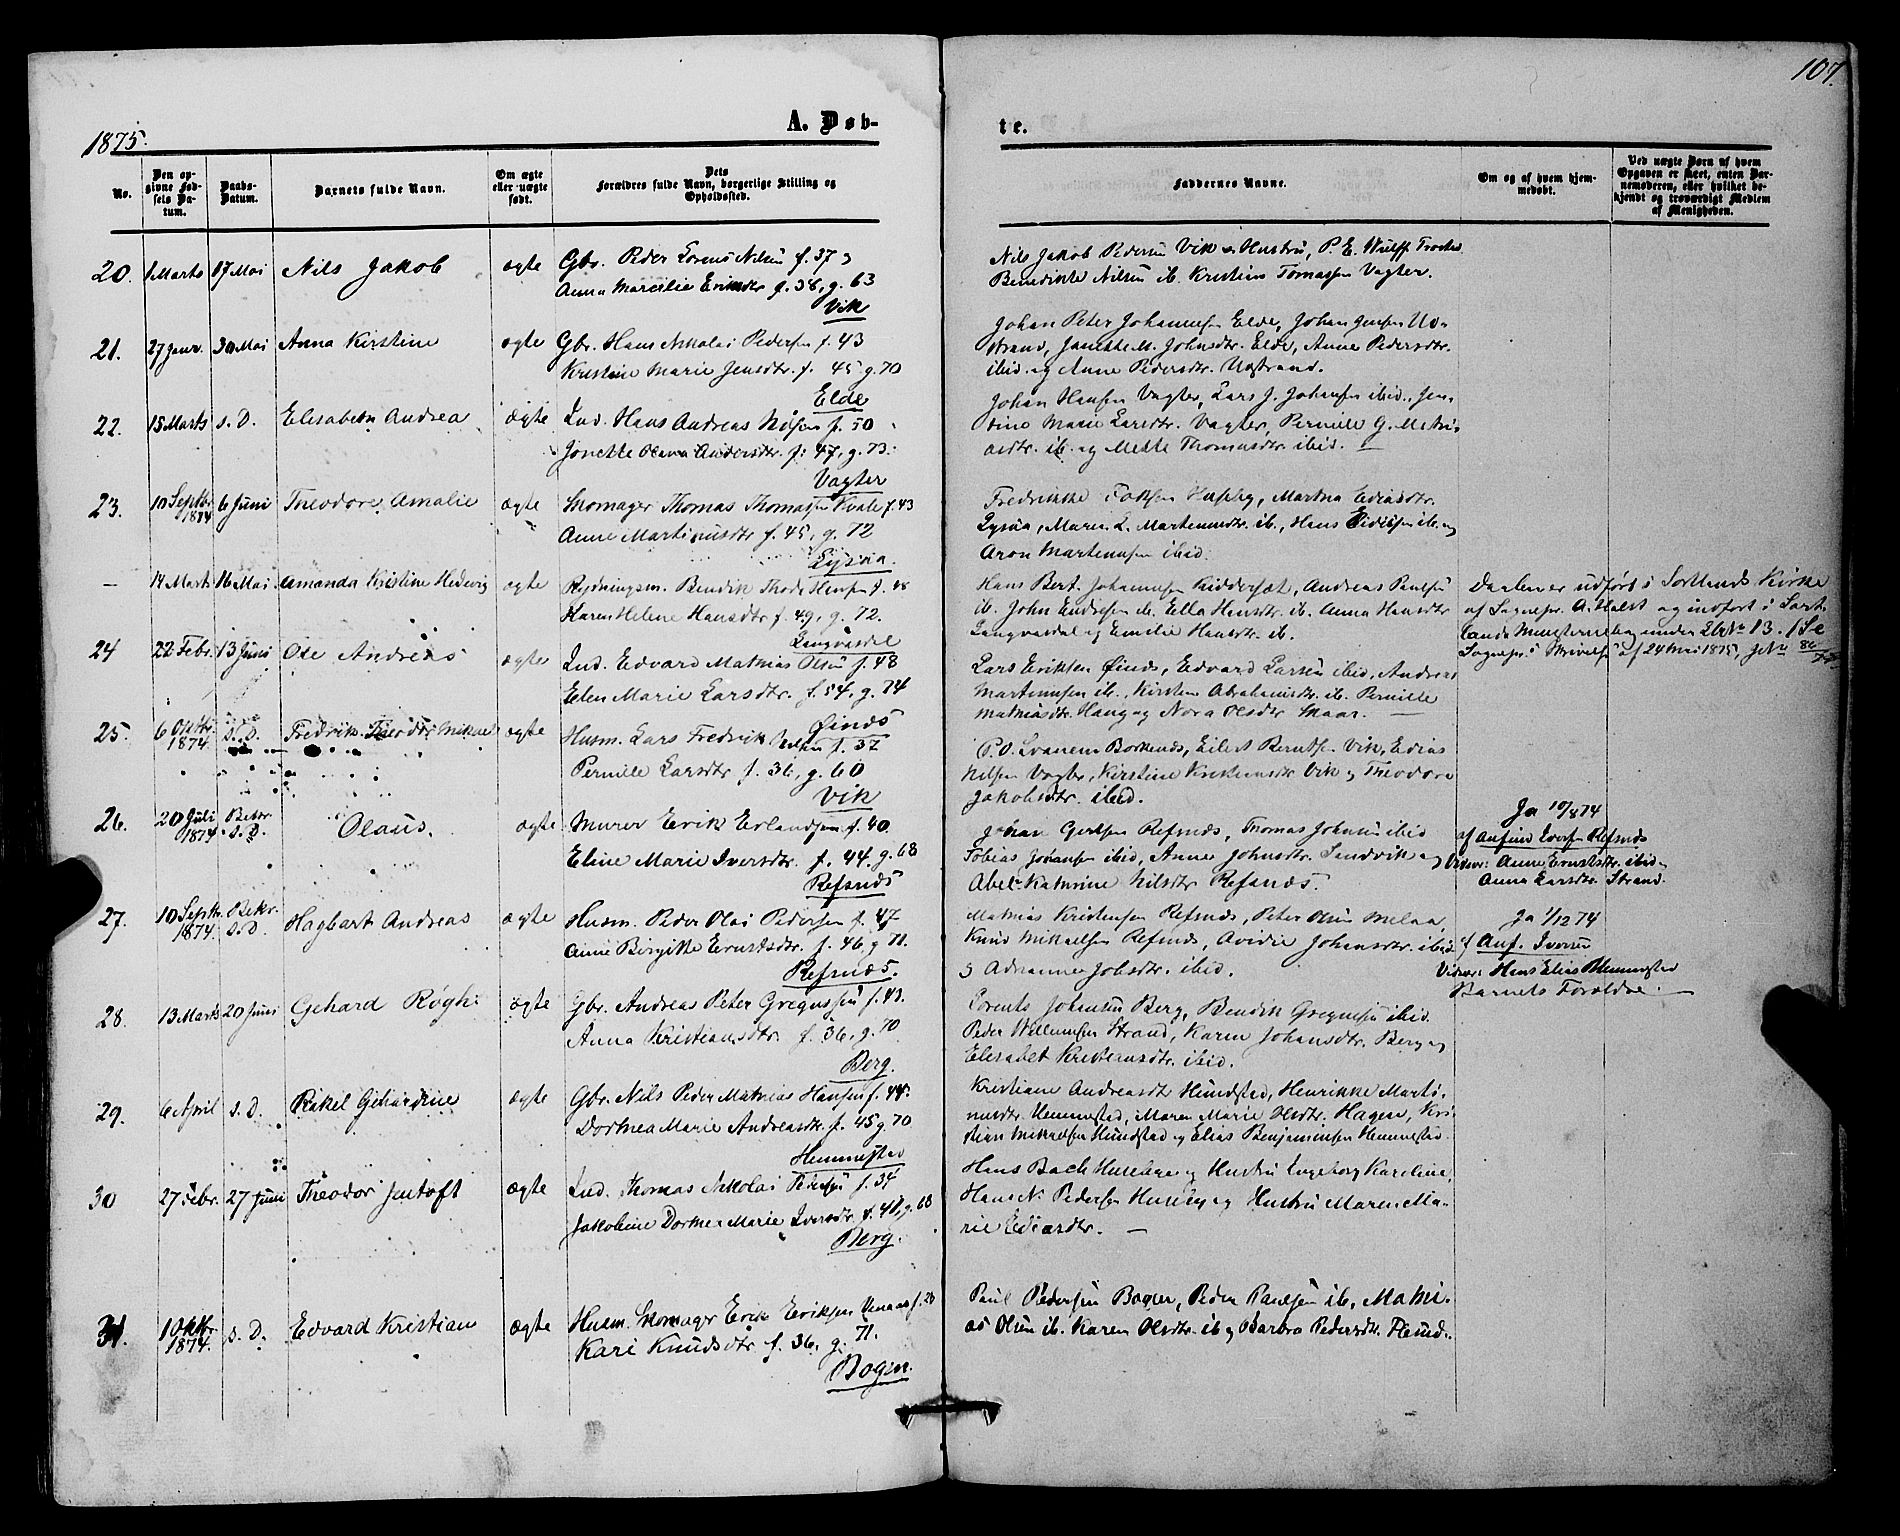 107.
1875.
A. Døb-
te.
No.
Den op-
givne Fød-
sels Da-
tum.
Daabs-
Datum.
Barnets fulde Navn.
Om ægte
eller uægte
født.
Dets
Forældres fulde Navn, borgerlige Stilling og
Opholdssted.
Faddernes Navne.
Om og af hvem hjem-
medøbt.
Ved uægte Born af hvem
Opgaven er skeet, enten Bar-
nemoderen, eller hvilket be-
kjendt og troværdigt Medlem
af Menigheden.
20. 1 Marts 17 Mai Nils Jakob ægte Gbr. Peder Lorens Nilsen f. 37 &
Anna Marcilie Eriksdtr f. 38, g. 63
Vik
Nils Jakob Pedersen Vik & Hustru, P. E. Wulff
Benedikte Nilsen ib. Kristian Tomassen Vagter.
21. 27 Janr. 30 Mai Anna Kirstine ægte Gbr. Hans Nikolai Pedersen f. 43
Kristine Marie Jensdtr. f. 45 g. 70
Elde
Johan Peter Johannesen Elde, Johan Jensen Ud-
strand, Janethe M. Johnsdtr. Elde, Anne Pedersdtr.
ibid. og Anne Pedersdtr. Udstrand.
22. 15 Marts s. D. Elisabeth Andrea ægte Ind. Hans Andreas Nilsen f. 50
Jonette Olava Andersdtr. f. 47, g. 73.
Vagter
Johan Hansen Vagter, Lars J. Johansen ibid., Jen-
sine Marie Larsdtr. Vagter, Pernille G. Mathi-
asdtr. ib. og Mette Thomasdtr. ibid. —
23. 10 Septbr 1874 6 Juni Theodore Amalie ægte Skomager Thomas Thomassen Kvale f. 43
Anne Martinusdtr f. 45, g. 72
Lysaa
Fredrikke Husby, Martha Ediasdtr.
Lysaa, Maren L. Martinusdtr. ib., Hans ib. og
Aron Martinusen ibid.
— 14 Marts 16 Mai Amanda Kristine Hedevig ægte Rydningsm. Bendik Thode Hansen f. 48
Karen Helene Hansdtr f. 49, g. 72.
Langvasdal
Hans Bert. Johannesen Kiddersæt, Andreas Paulsen
ib. John Endresen ib. Ella Hansdtr ib. Anna Hansdtr
Langvasdal og Emilie Hansdtr. ib.
Daaben er udført i Sortlands Kirke
af Sognepr. A. Halst og indført i Sort-
lands Ministerialbog under No 13.
Sognepr.s Skrivelse af 24 Mai 1875,
24 22 Febr. 13 Juni Ole Andreas ægte Ind. Edvard Mathias Olsen f. 48
Elen Marie Larsdtr. f. 54, g. 74
Øinæs
Lars Eriksen Øinæs, Edvard Larsen ibid, Andreas
Martinusen ib., Kirsten Abrahamsdtr. ib. Pernille
Mathiasdtr. Haug og Nora Olsdtr Skaar. —
25 6 Oktbr. 1874. s. D. Fredrik Theodor Mikal ægte Husm. Lars Fredrik Nilsen f. 37
Pernille Larsdtr f. 36, g. 60
Vik
P. O. Svanem Borkenæs, Eilert Berntsen Vik, Edias
Nilsen Vagter, Kirstine Kristiansdtr Vik og Theodore
Jakobsdtr. ibid.
26. 20 Juli 1874 Bekr. s. D. Olaus. ægte Murer Erik Erlandsen f. 40
Eline Marie Iversdtr. f. 44. g. 68
Refsnæs
Johan Gertsen Refsnæs, Thomas Johnsen ibid
Tobias Johansen ibid, Anne Johnsdtr. Sandvik og
Abel Kathrine Nilsdtr Refsnæs.
Ja 10/8 74
af Anfind Iversen Refsnæs
Vidner: Anne Ernstsdtr. ibid og
Anna Larsdtr. Strand.
27. 10 Septr. 1874. Bekr. s. D. Hagbart Andreas ægte Husm. Peder Olai Pedersen f. 47
Anne Birgitte Ernstsdtr. f. 46, g 71.
Refsnæs.
Mathias Kristensen Refsnæs, Peter Olsen Melaa,
Knud Mikalsen Refsnæs, Avidie Johansdtr. ibid
& Adrianne Jobsdtr. ibid.
Ja 1/12 74
af Anf. Iversen
Vidner: Hans Elias Hemmestad
Barnets Forældre. —
28. 13 Marts 20 Juni Gehard Røgh: ægte Gbr. Andreas Peter Gregussen f. 43.
Anna Kristiansdtr. f. 36, g. 70
Berg.
Lorents Johansen Berg, Bendik Gregusen ibid.
Peder Willumsen Strand, Karen Johansdtr. Berg og
Elisabet Kristiansdtr. ibid.
29. 6 April s. D. Rakel Gehardine ægte Gbr. Nils Peder Mathias Hansen f. 44.
Dorthea Marie Andreasdtr. f. 45 g. 70
Hemmestad
Kristiane Andreasdtr Hundstad, Henrikke Marti-
nusdtr. Hemmestad, Maren Marie Olsdtr. Hagen, Kri-
stian Mikalsen Hundstad og Elias Benjaminsen Hemmestad.
30 27 Febr. 27 Juni Theodor Jentoft ægte Ind. Thomas Nikolai Pedersen f. 34
Jakobine Dorthea Marie Iversdtr. f. 41, g. 68
Berg.
Hans Bach Huseby og Hustru Ingeborg Karoline,
Hans N. Pedersen Huseby og Hustru Maren Ma-
rie Ediasdtr. —
31. 1 Oktbr 1874. s. D. Edvard Kristian ægte Husm. Skomager Erik Eriksen f. 28
Kari Knudsdtr f. 36, g. 71.
Bogen.
Paul Pedersen Bogen, Peder Paulsen ib., Mathi-
as Olsen ib. Karen Olsdtr. ib og Barbra Pedersdtr.